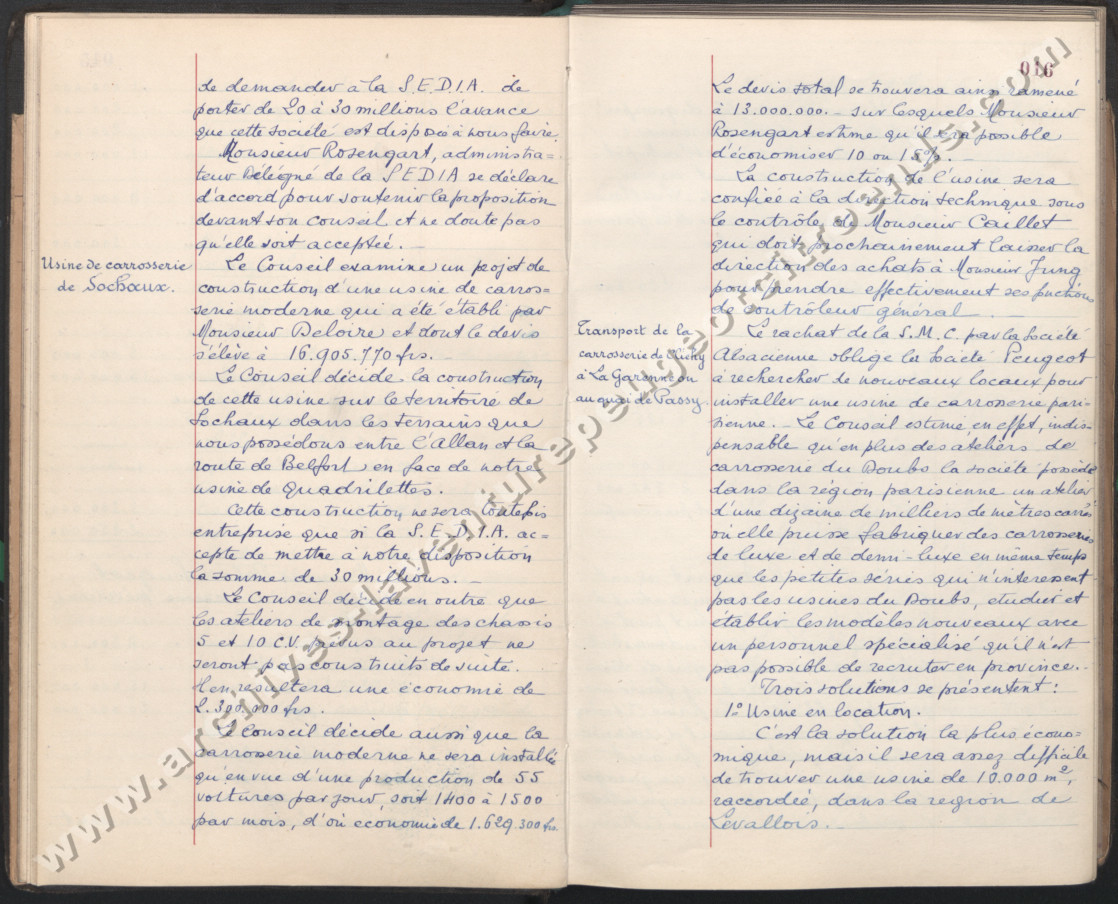 de demander à la S.E.D.I.A. de
porter de 20 à 30 millions l'avance
que cette société est disposée à nous faire.
Monsieur Rosengart, administra=
teur Délégué de la SEDIA se déclare
d'accord pour soutenir la proposition
devant son conseil et ne doute pas
qu'elle soit acceptée. —
Usine de carrosserie
de Sochaux.
Le Conseil examine un projet de
construction d'une usine de carros=
serie moderne qui a été établi par
Monsieur Deloire et dont le devis
s'élève à 16.905.770 frs.
Le Conseil décide la construction
de cette usine sur le territoire de
Sochaux dans les terrains que
nous possédons entre l'Allan et la
route de Belfort en face de notre
usine de quadrilettes.
Cette construction ne sera toutefois
entreprise que si la S.E.D.I.A. ac=
cepte de mettre à notre disposition
la somme de 30 millions. —
Le Conseil décide en outre que
les ateliers de montage des chassis
5 et 10 C.V. prévus au projet ne
seront pas construits de suite.
Il en resultera une économie de
2.300.000 frs.
Le Conseil décide aussi que la
carrosserie moderne ne sera installée
qu'en vue d'une production de 55
voitures par jour soit 1400 à 1500
par mois, d'où économie de 1.629.300 frs.
016
Le devis total se trouvera ainsi ramené
à 13.000.000. — sur lesquels Monsieur
Rosengart estime qu'il sera possible
d'économiser 10 ou 15%. —
La construction de l'usine sera
confiée à la direction technique sous
le contrôle de Monsieur Caillet
qui doit prochainement laisser la
direction des achats à Monsieur Jung
pour prendre effectivement ses fonctions
de contrôleur général. —
Transport de la
carrosserie de Clichy
à La Garenne ou
au quai de Passy.
Le rachat de la S.M.C. par la Société
Alsacienne oblige la Société Peugeot
à rechercher de nouveaux locaux pour
installer une usine de carrosserie pari=
sienne. — Le Conseil estime en effet, indis=
pensable qu'en plus des ateliers de
carrosserie du Doubs la société possède
dans la région parisienne un atelier
d'une dizaine de milliers de mètres carrés
où elle puisse fabriquer des carrosseries
de luxe et de demi-luxe en même temps
que les petites séries qui n'interessent
pas les usines du Doubs, étudier et
établir les modèles nouveaux avec
un personnel spécialisé qu'il n'est
pas possible de recruter en province. —
Trois solutions se présentent :
1º Usine en location.
C'est la solution la plus écono=
mique, mais il sera assez difficile
de trouver une usine de 10.000 m²,
raccordée, dans la region de
Levallois. —